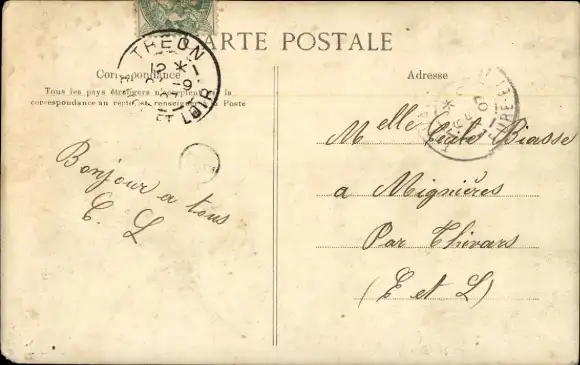 CARTE POSTALE
Correspondance
Tous les pays étrangers n'acceptent pas la
correspondance au recto et renseigner à la Poste
Adresse
TRÉON
12 *
9
ET LOIR
EURE-E
Bonjour a tous
E. L
Melle Biasse
a Mignières
Par Thivars
(E et L)